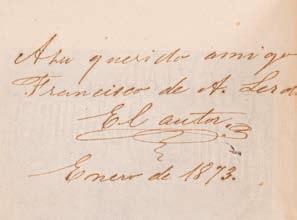 A su querido amigo
Francisco de A. Lerd
El autor.
Enero de 1873.